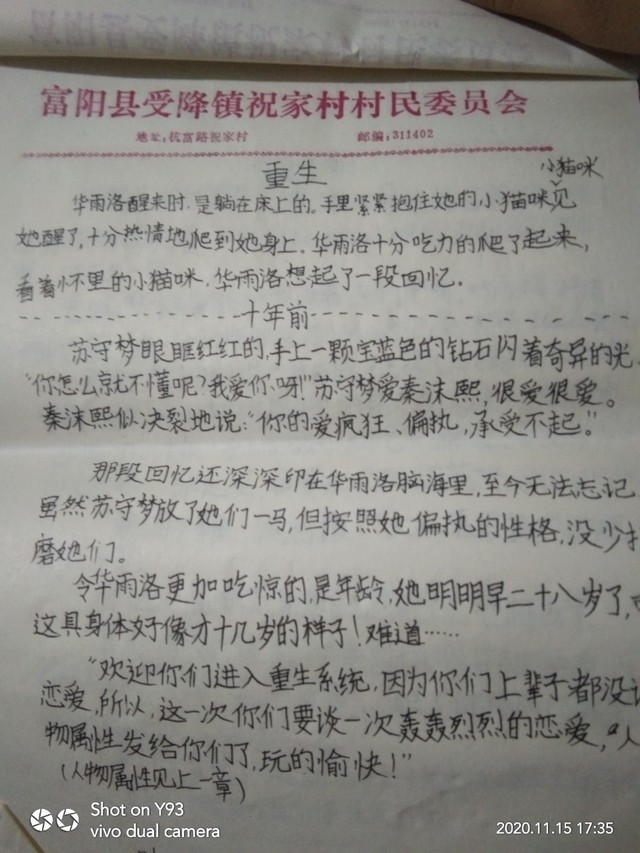 富阳县受降镇祝家村村民委员会
地址:杭富路祝家村 邮编:311402
重生
小猫咪
华雨洛醒来时,是躺在床上的。手里紧紧抱住她的小猫咪见
她醒了,十分热情地爬到她身上。华雨洛十分吃力的爬了起来,
看着怀里的小猫咪,华雨洛想起了一段回忆。
十年前
苏守梦眼眶红红的,手上一颗宝蓝色的钻石闪着奇异的光
“你怎么就不懂呢?我爱你呀!”苏守梦爱秦沫熙,很爱很爱。
秦沫熙似决裂地说:“你的爱疯狂、偏执,承受不起。”
那段回忆还深深印在华雨洛脑海里,至今无法忘记
虽然苏守梦放了她们一马,但按照她偏执的性格,没少
磨她们。
令华雨洛更加吃惊的,是年龄,她明明早二十八岁了,
这具身体好像才十几岁的样子!难道……
“欢迎你们进入重生系统,因为你们上辈子都没
恋爱,所以,这一次你们要谈一次轰轰烈烈的恋爱,“人
物属性发给你们了,玩的愉快!”
(人物属性见上一章)
Shot on Y93
vivo dual camera
2020.11.15 17:35